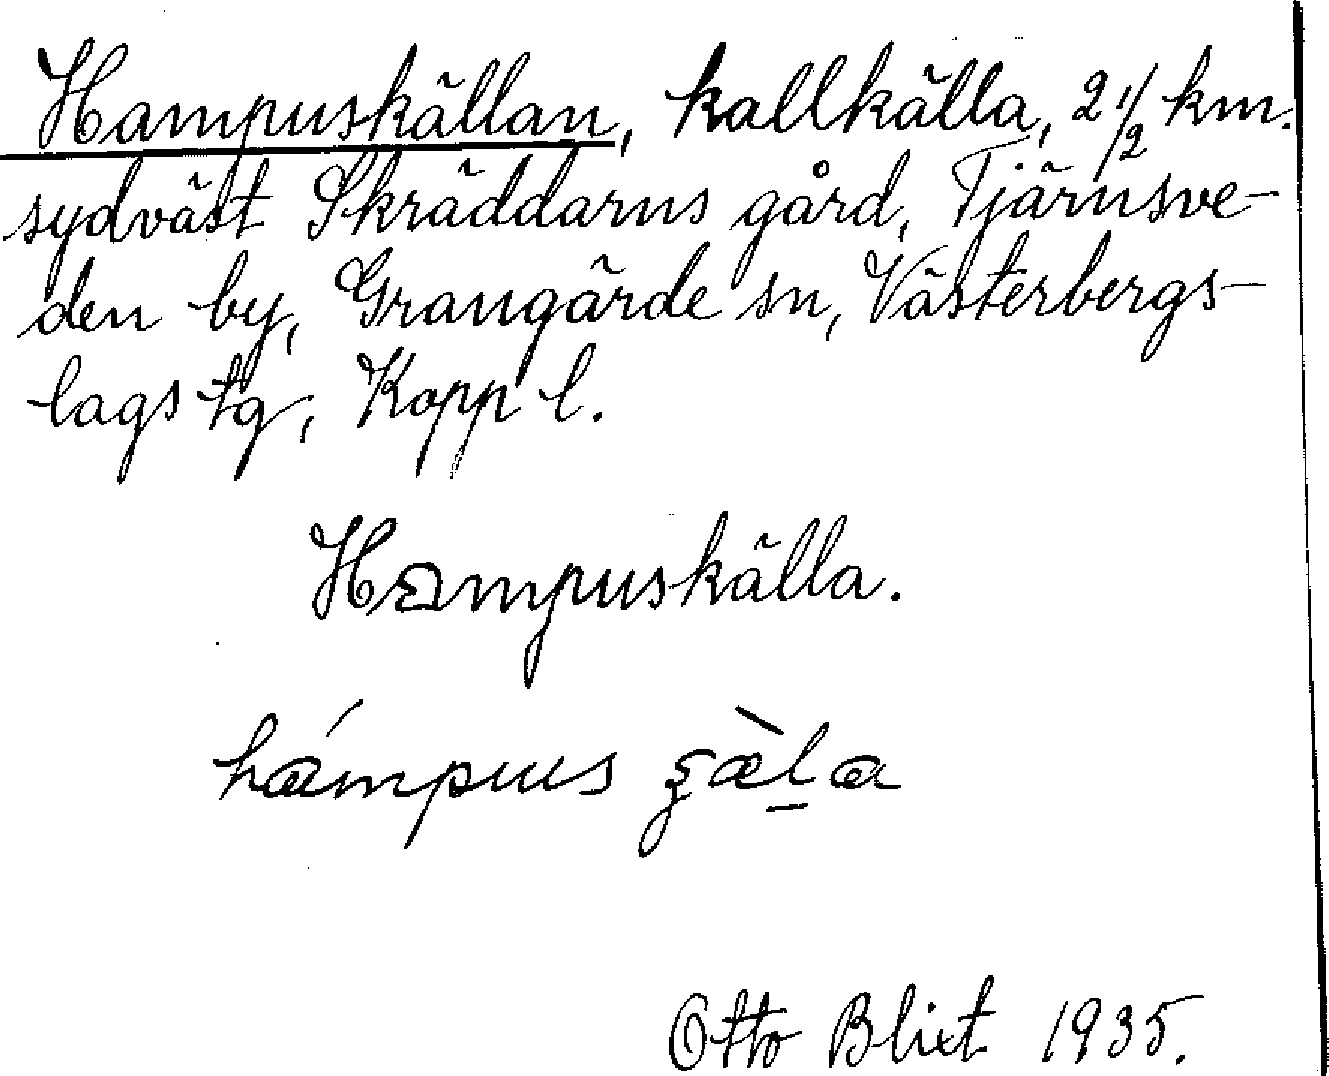 Hampuskällan, kallkälla, 2 1/2 km.
sydväst Skräddarns gård, Tjärnsve-
den by, Grangärde sn, Västerbergs-
lags tg, Kopp l.
Hampuskälla.
hámpus
Otto Blixt 1935.